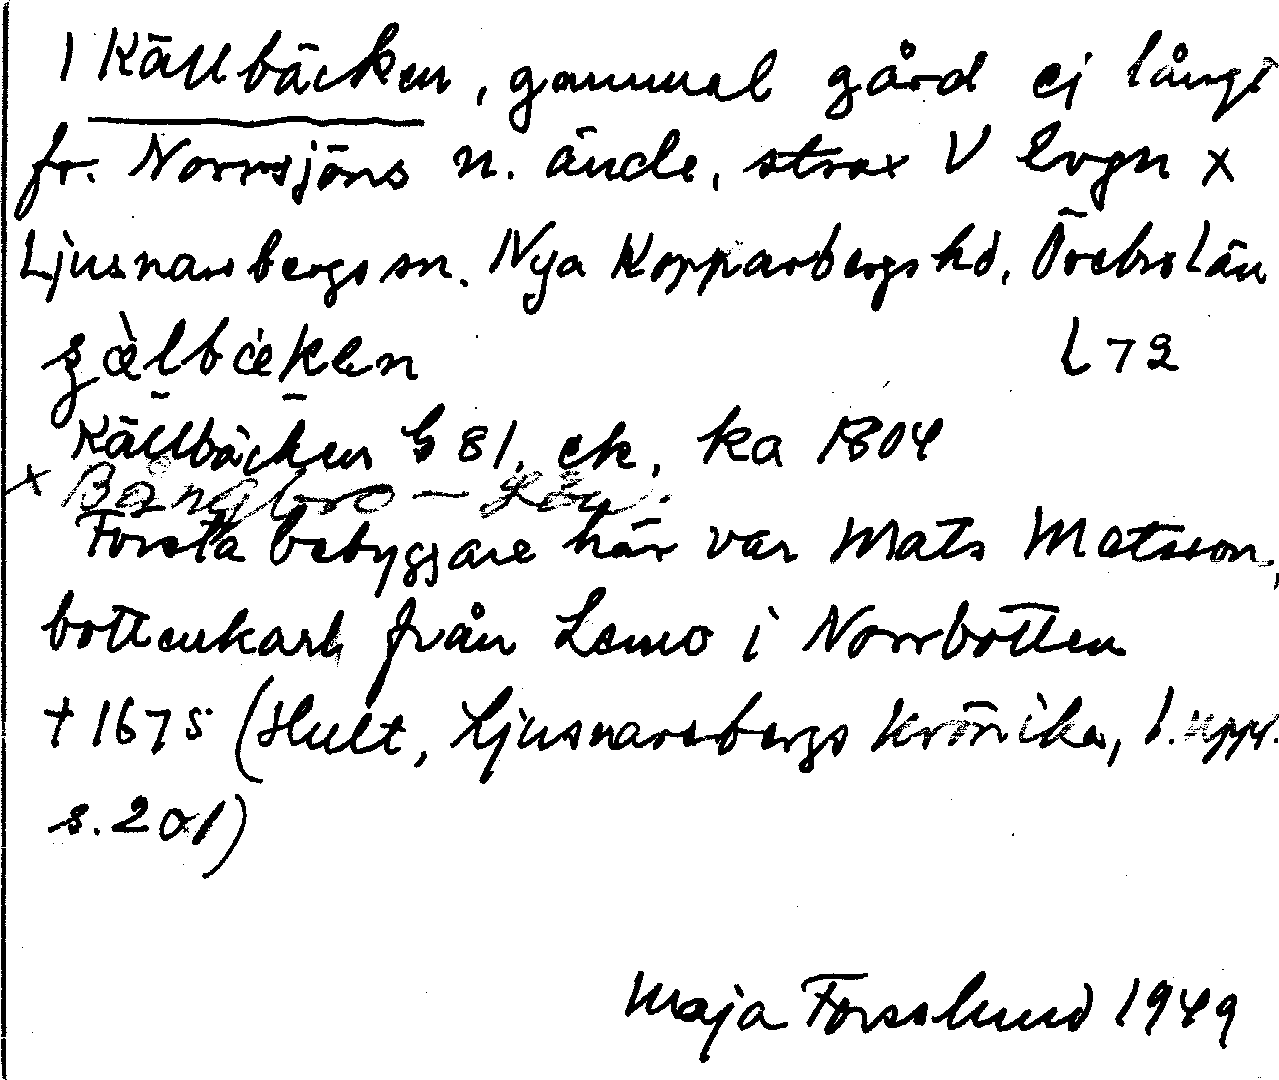 1 Källbäcken, gammal gård ej långt
fr. Norrsjöns n. ände, strax V lvgn x
Ljusnarsbergs sn. Nya Kopparbergs hd, Örebro län
L 72
Källbäcken G 81, ek, ka 1804
x Bångbro -
Första bebyggare här var Mats Matsson,
bottenkarl från Lemo i Norrbotten
† 1675 (Hult, Ljusnarsbergs krönika, 1. uppl.
s. 201)
Maja Forsslund 1949